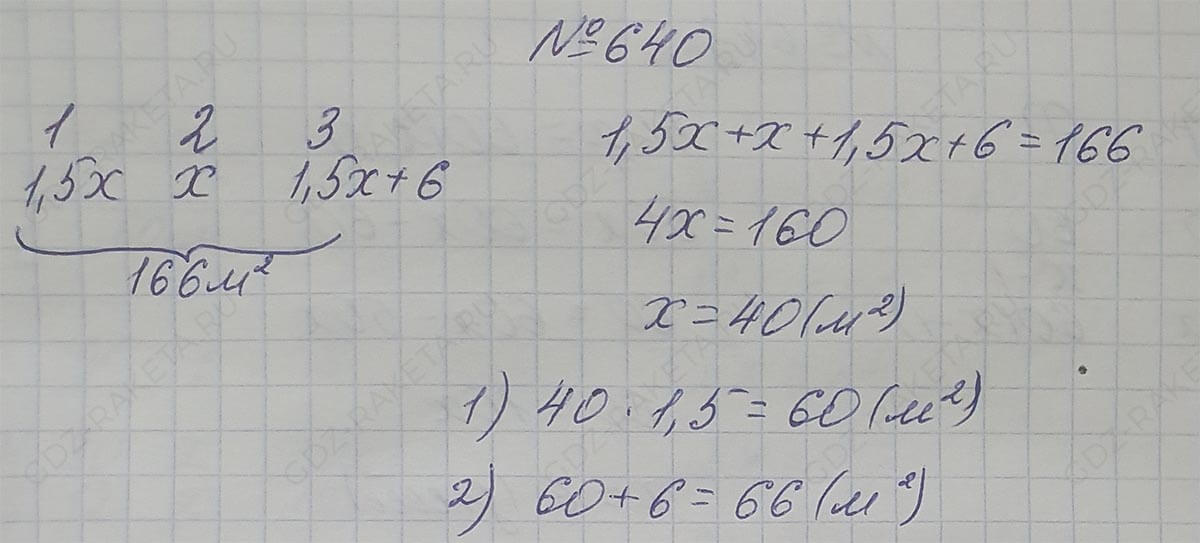 №640
1 2 3
1,5x x 1,5x+6
166м²
1,5x+x+1,5x+6=166
4x=160
x=40(м²)
1) 40·1,5=60(м²)
2) 60+6=66(м²)
GDZ-RAKETA.RU